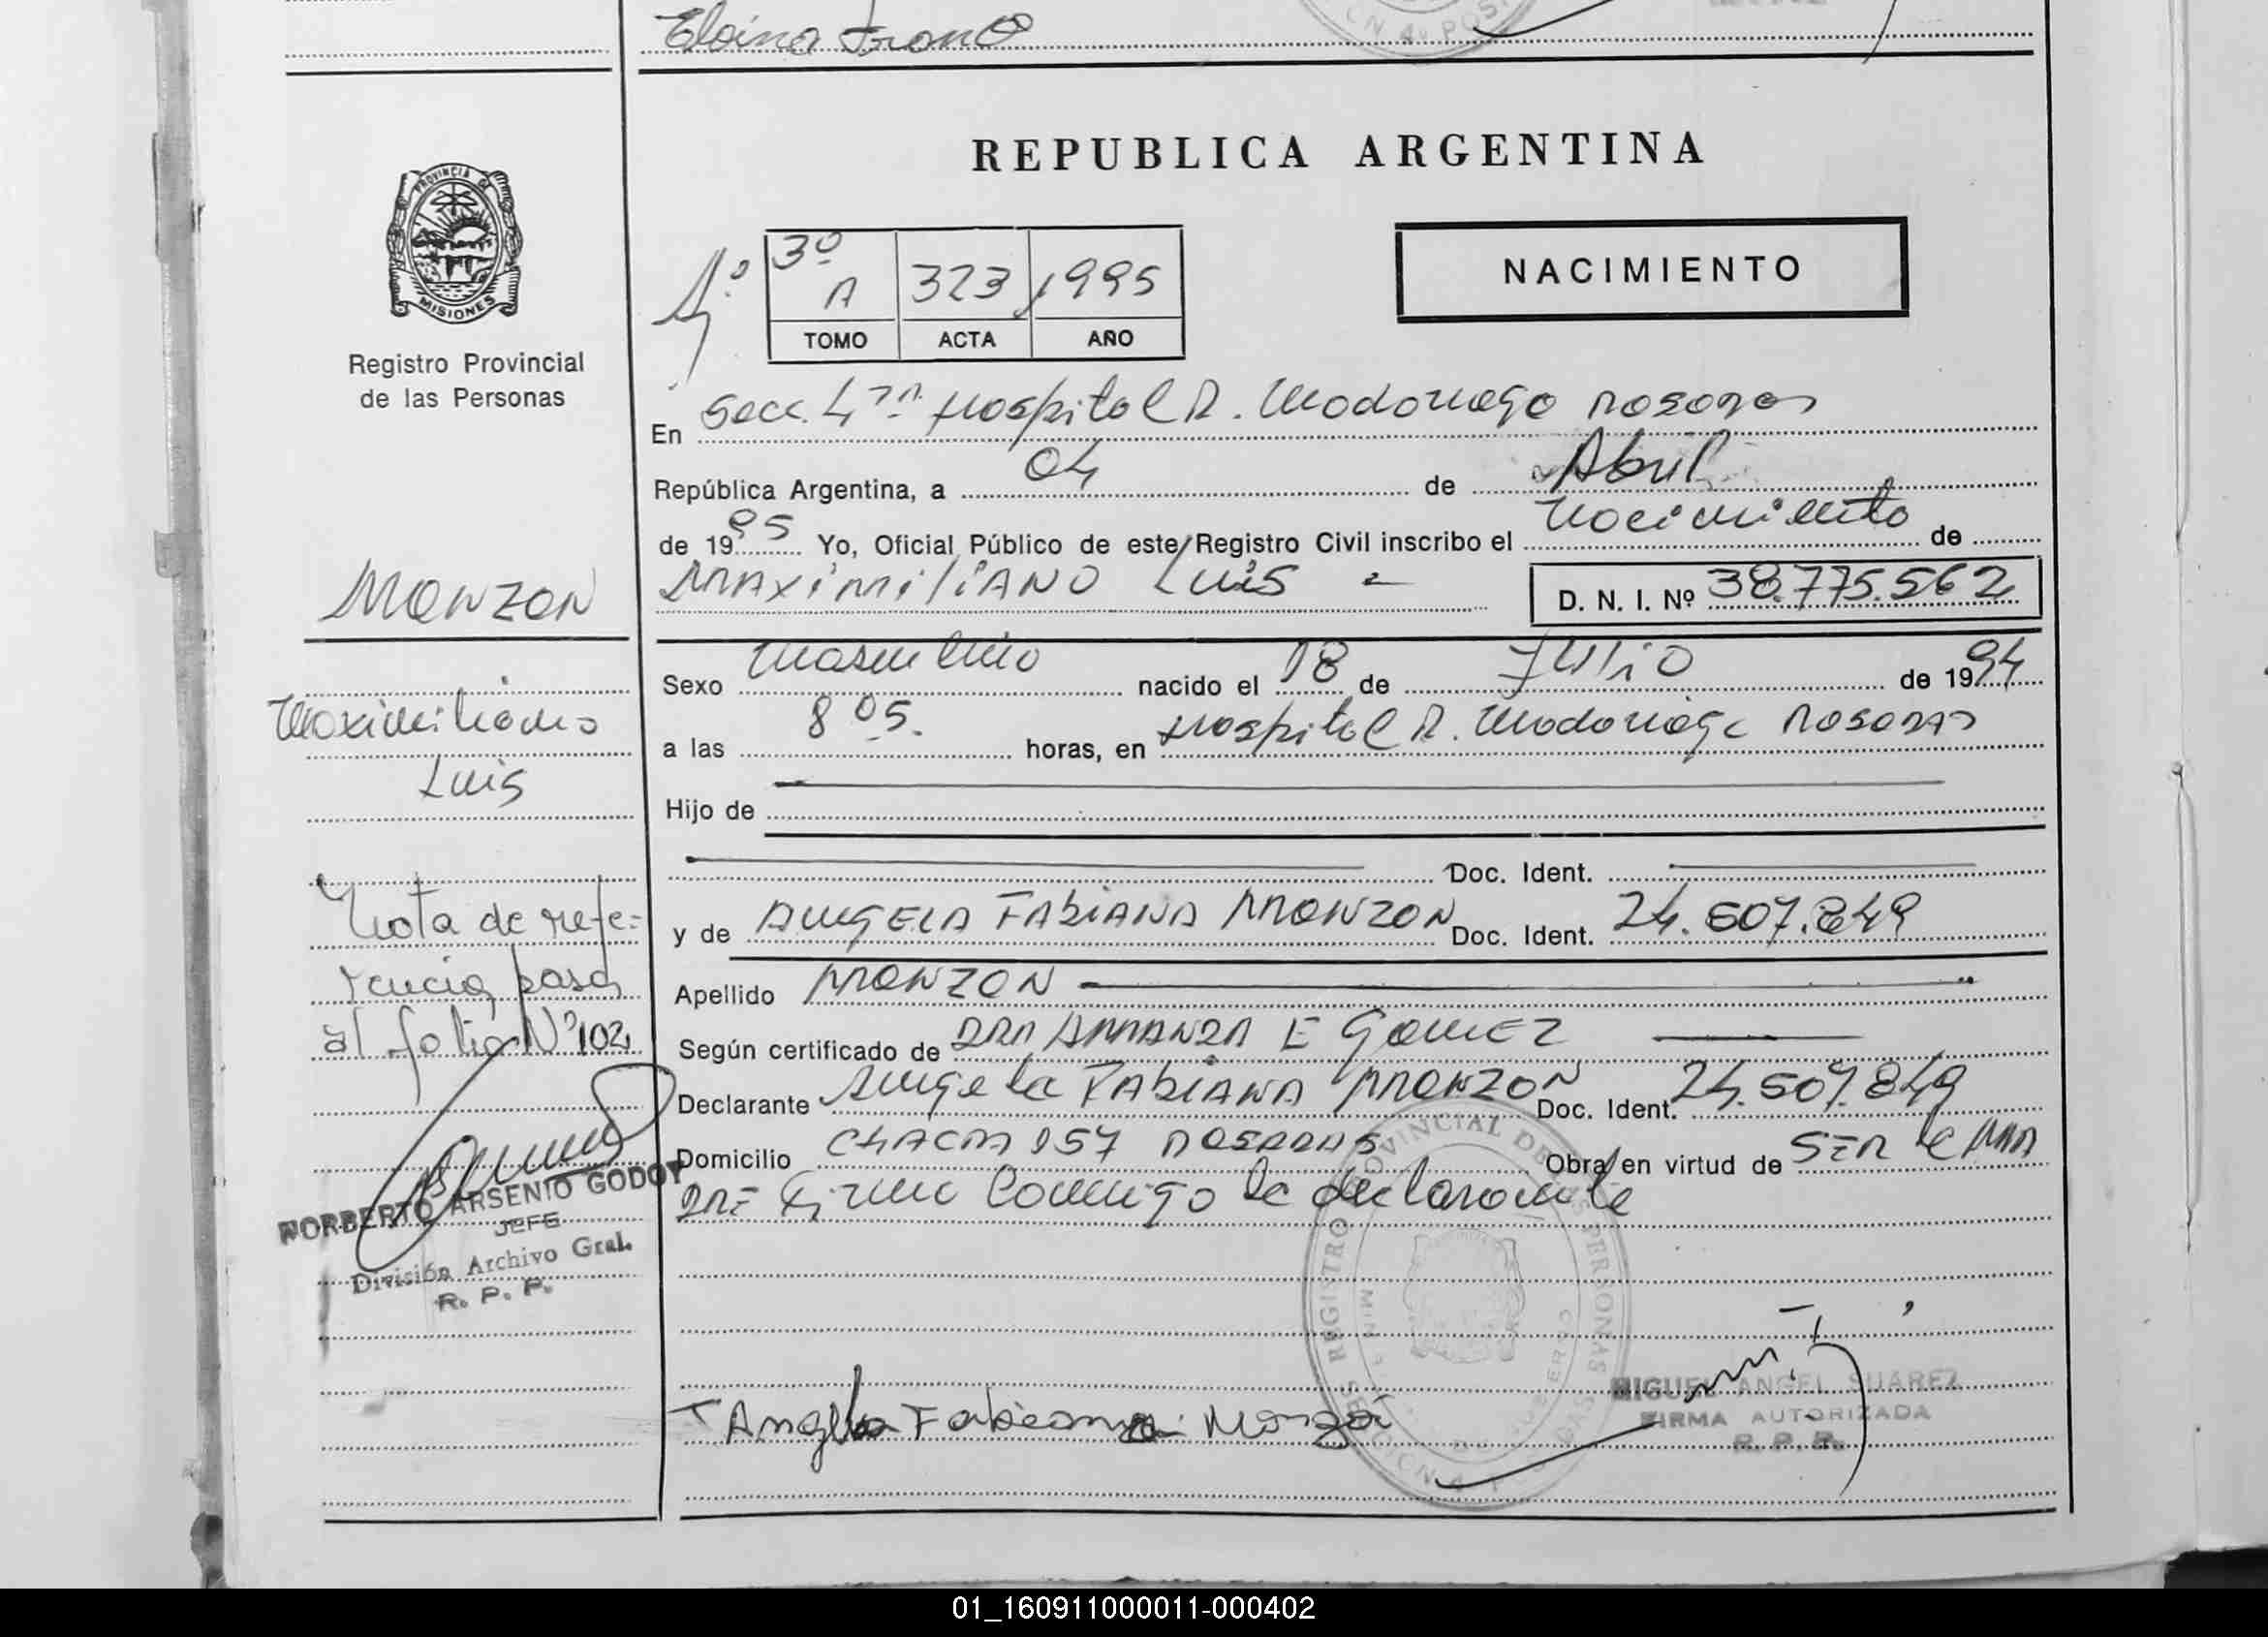 Eloina Franco
REPUBLICA ARGENTINA
PROVINCIA DE MISIONES
Registro Provincial
de las Personas
4º
3º A 323 1995
TOMO ACTA AÑO
NACIMIENTO
En Secc. 4ta Hospital R. Madariaga Posadas
República Argentina, a 04 de Abril
de 1995 Yo, Oficial Público de este Registro Civil inscribo el Nacimiento de
MAXIMILIANO LUIS D. N. I. Nº 38.775.562
Sexo Masculino nacido el 18 de JULIO de 1994
a las 8 05. horas, en Hospital R. Madariaga Posadas
Hijo de
Doc. Ident.
y de ANGELA FABIANA MONZON Doc. Ident. 24.507.849
Apellido MONZON
Según certificado de DRA AMANDA E GOMEZ
Declarante Angela FABIANA MONZON Doc. Ident. 24.507.849
Domicilio CHACRA 157 POSADAS Obra en virtud de SER LA MA
DRE Firma Conmigo la declarante
Angela Fabiana Monzon
MIGUEL ANGEL SUAREZ
FIRMA AUTORIZADA
R. P. P.
REGISTRO PROVINCIAL DE LAS PERSONAS
MONZON
Maximiliano
Luis
Nota de refe-
rencia pasa
al folio Nº 102
NORBERTO ARSENIO GODOY
JEFE
División Archivo Gral.
R. P. P.
01_160911000011-000402